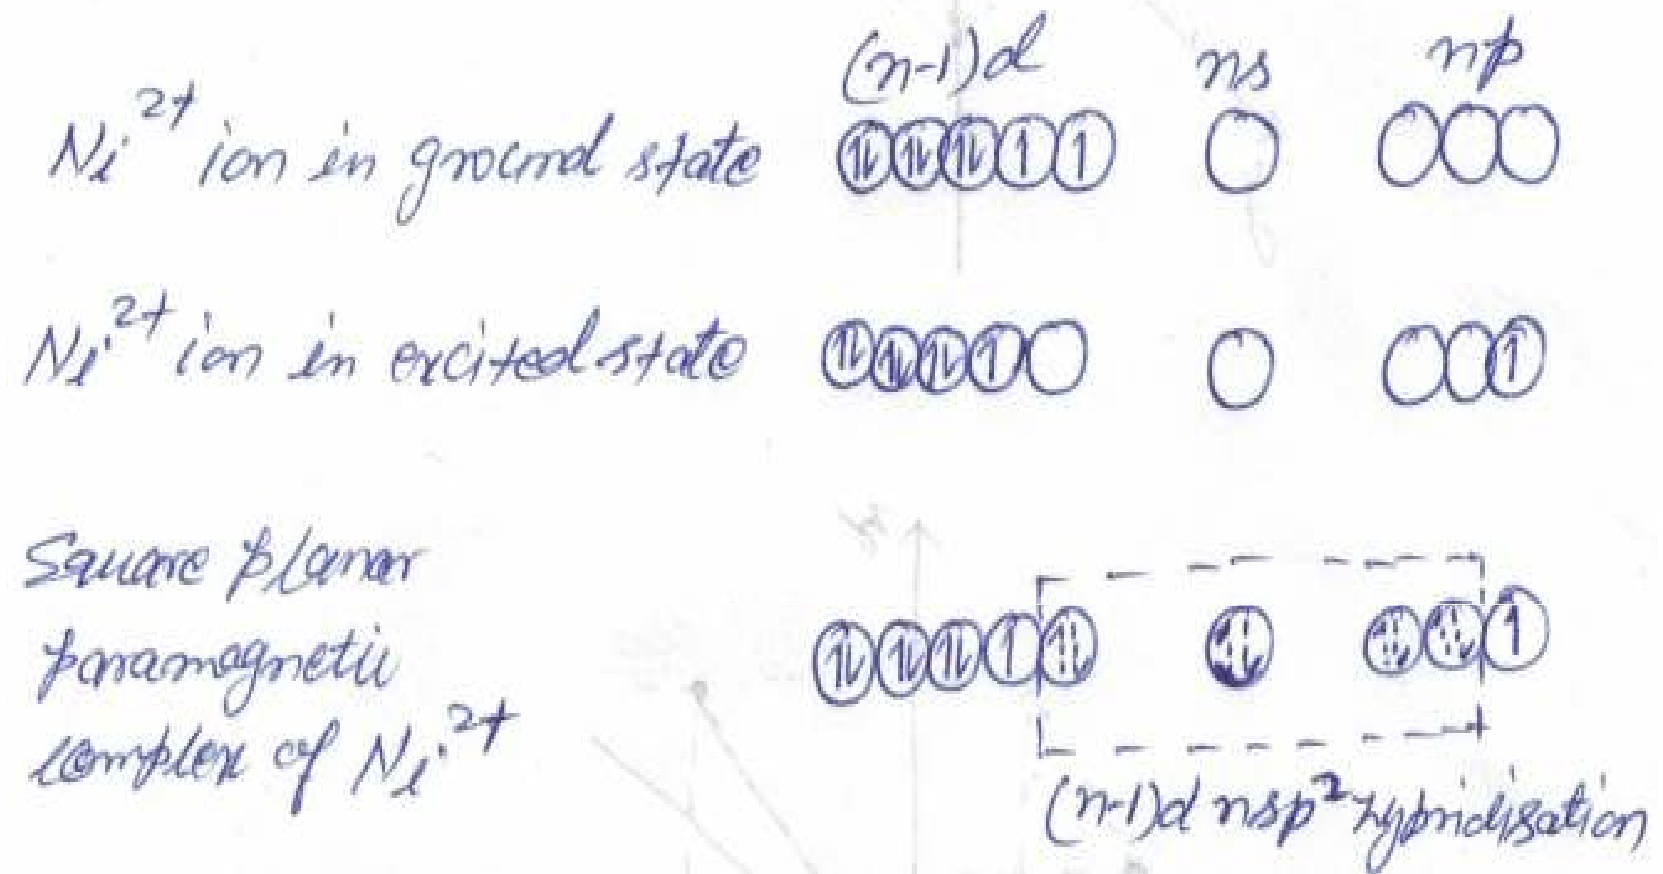 (n-1)d ns np
Ni²⁺ ion in ground state ⥮ ⥮ ⥮ ↿ ↿
Ni²⁺ ion in excited state ⥮ ⥮ ⥮ ↿ ↿
Square planar
paramagnetic
complex of Ni²⁺ ⥮ ⥮ ⥮ ↿ ⥮ ⥮ ⥮ ⥮ ↿
(n-1)d nsp² hybridisation